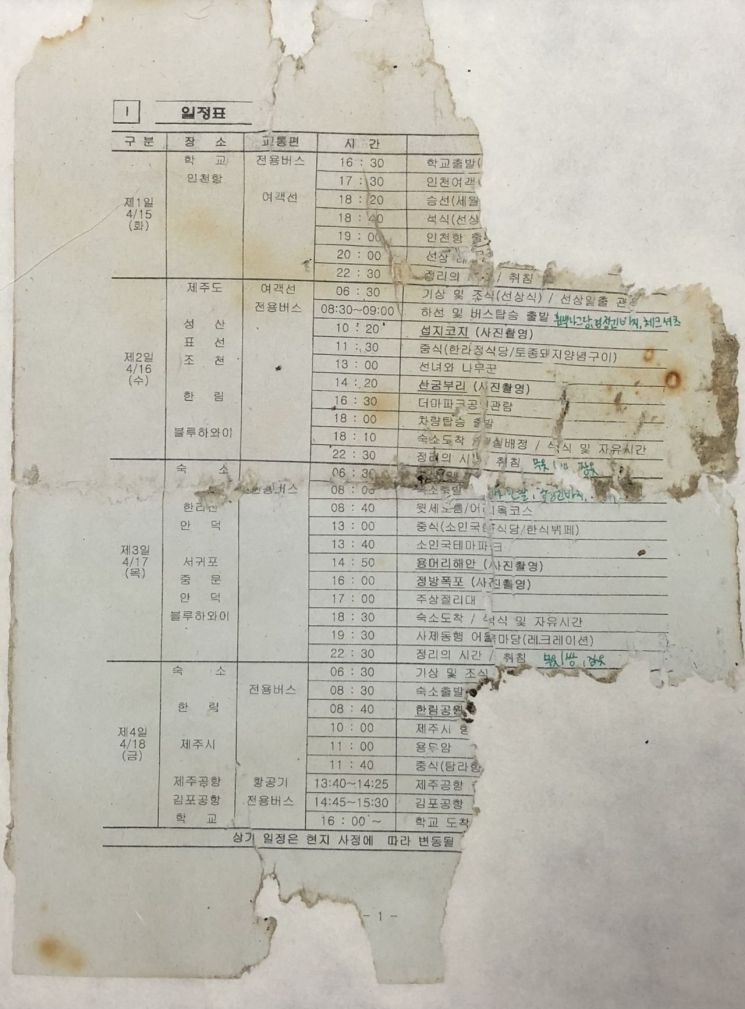 I 일정표
구 분 장 소 교통편 시 간
제1일 4/15 (화)
학 교 전용버스 16 : 30 학교출발(
인천항 17 : 30 인천여객
여객선 18 : 20 승선(세월
18 : 40 석식(선상
19 : 00 인천항 출
20 : 00 선상
22 : 30 정리의 / 취침
제2일 4/16 (수)
제주도 여객선 06 : 30 기상 및 조식(선상식) / 선상일출 관
전용버스 08:30~09:00 하선 및 버스탑승 출발
성 산 10 : 20 섭지코지 (사진촬영)
표 선 11 : 30 중식(한라정식당/토종돼지양념구이)
조 천 13 : 00 선녀와 나무꾼
14 : 20 산굼부리 (사진촬영)
한 림 16 : 30 더마파크공연관람
18 : 00 차량탑승 출발
블루하와이 18 : 10 숙소도착 / 실배정 / 석식 및 자유시간
22 : 30 정리의 시 / 취침
제3일 4/17 (목)
숙 소 06 : 30
버스 08 : 00 숙소출발
한라산 08 : 40 윗세오름/어 목코스
안 덕 13 : 00 중식(소인국 식당/한식뷔페)
13 : 40 소인국테마파크
서귀포 14 : 50 용머리해안 (사진촬영)
중 문 16 : 00 정방폭포 (사진촬영)
안 덕 17 : 00 주상절리대
블루하와이 18 : 30 숙소도착 / 석식 및 자유시간
19 : 30 사제동행 어울마당(레크레이션)
22 : 30 정리의 시간 / 취침
제4일 4/18 (금)
숙 소 06 : 30 기상 및 조식
전용버스 08 : 30 숙소출발
한 림 08 : 40 한림공원
10 : 00 제주시
제주시 11 : 00 용두암
11 : 40 중식(탐라
제주공항 항공기 13:40~14:25 제주공항
김포공항 전용버스 14:45~15:30 김포공항
학 교 16 : 00 ~ 학교 도착
상기 일정은 현지 사정에 따라 변동될
- 1 -